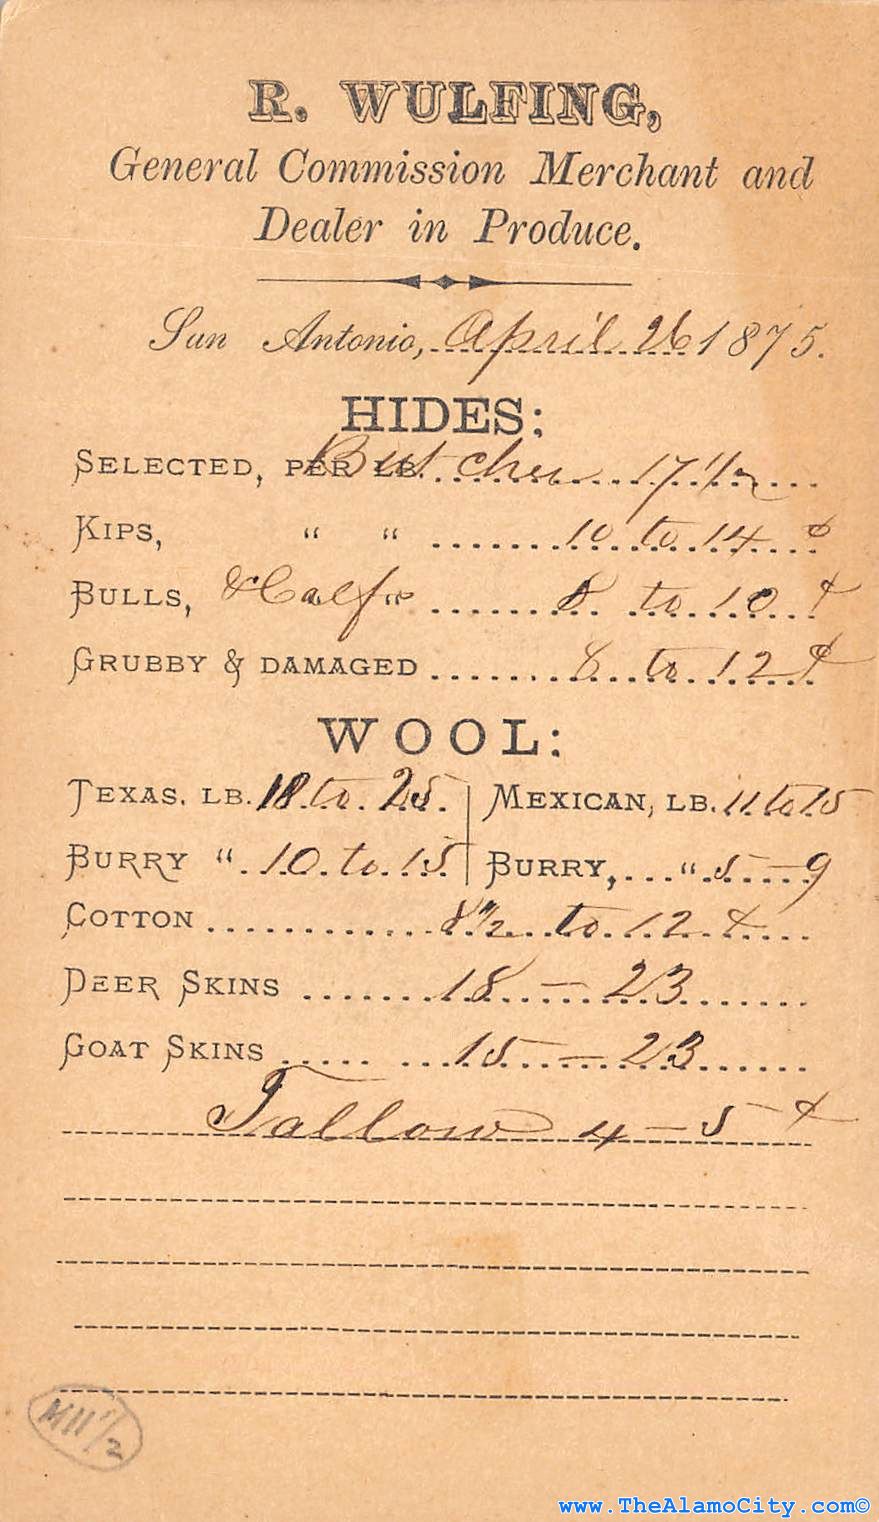 R. WULFING,
General Commission Merchant and
Dealer in Produce.
San Antonio, April 26 1875.
HIDES:
SELECTED, PER LB. Butcher 17 1/2
KIPS, " " 10 to 14 ¢
BULLS, & Calf " 8 to 10 ¢
GRUBBY & DAMAGED 8 to 12 ¢
WOOL:
TEXAS. LB. 18 to 25 MEXICAN, LB. 11 to 15
BURRY " 10 to 15 BURRY, " 5 – 9
COTTON 8 1/2 to 12 ¢
DEER SKINS 18 – 23
GOAT SKINS 15 – 23
Tallow 4 – 5 ¢
M11 1/2
www.TheAlamoCity.com©